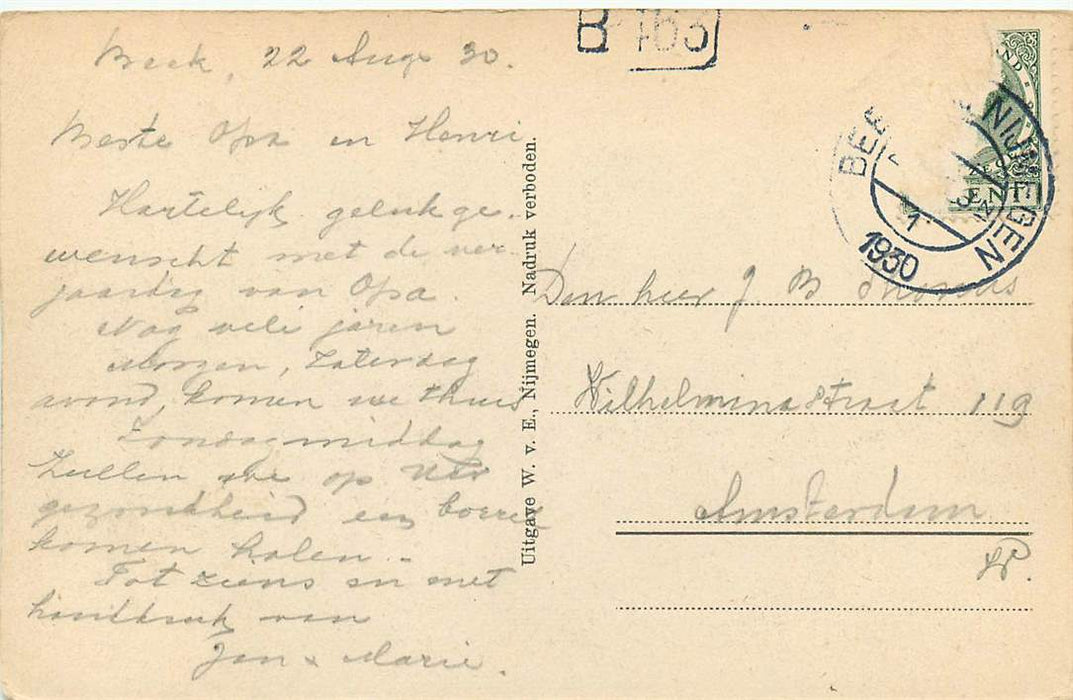 B 163
Beek, 22 Aug. 30.
Beste Opa en Henri
Hartelijk geluk ge-
wenscht met de ver-
jaardag van Opa.
Nog vele jaren
Morgen, Zaterdag
avond, komen we thuis
Zondagmiddag
zullen we op
gezondheid een borrel
komen halen.
Tot ziens en met
handdruk van
Jan & Marie.
Uitgave W. v. E., Nijmegen. Nadruk verboden.
BEE NIJMEGEN
1930
CENT
Den heer J. B. Thomas
Wilhelmina straat 119
Amsterdam
W.